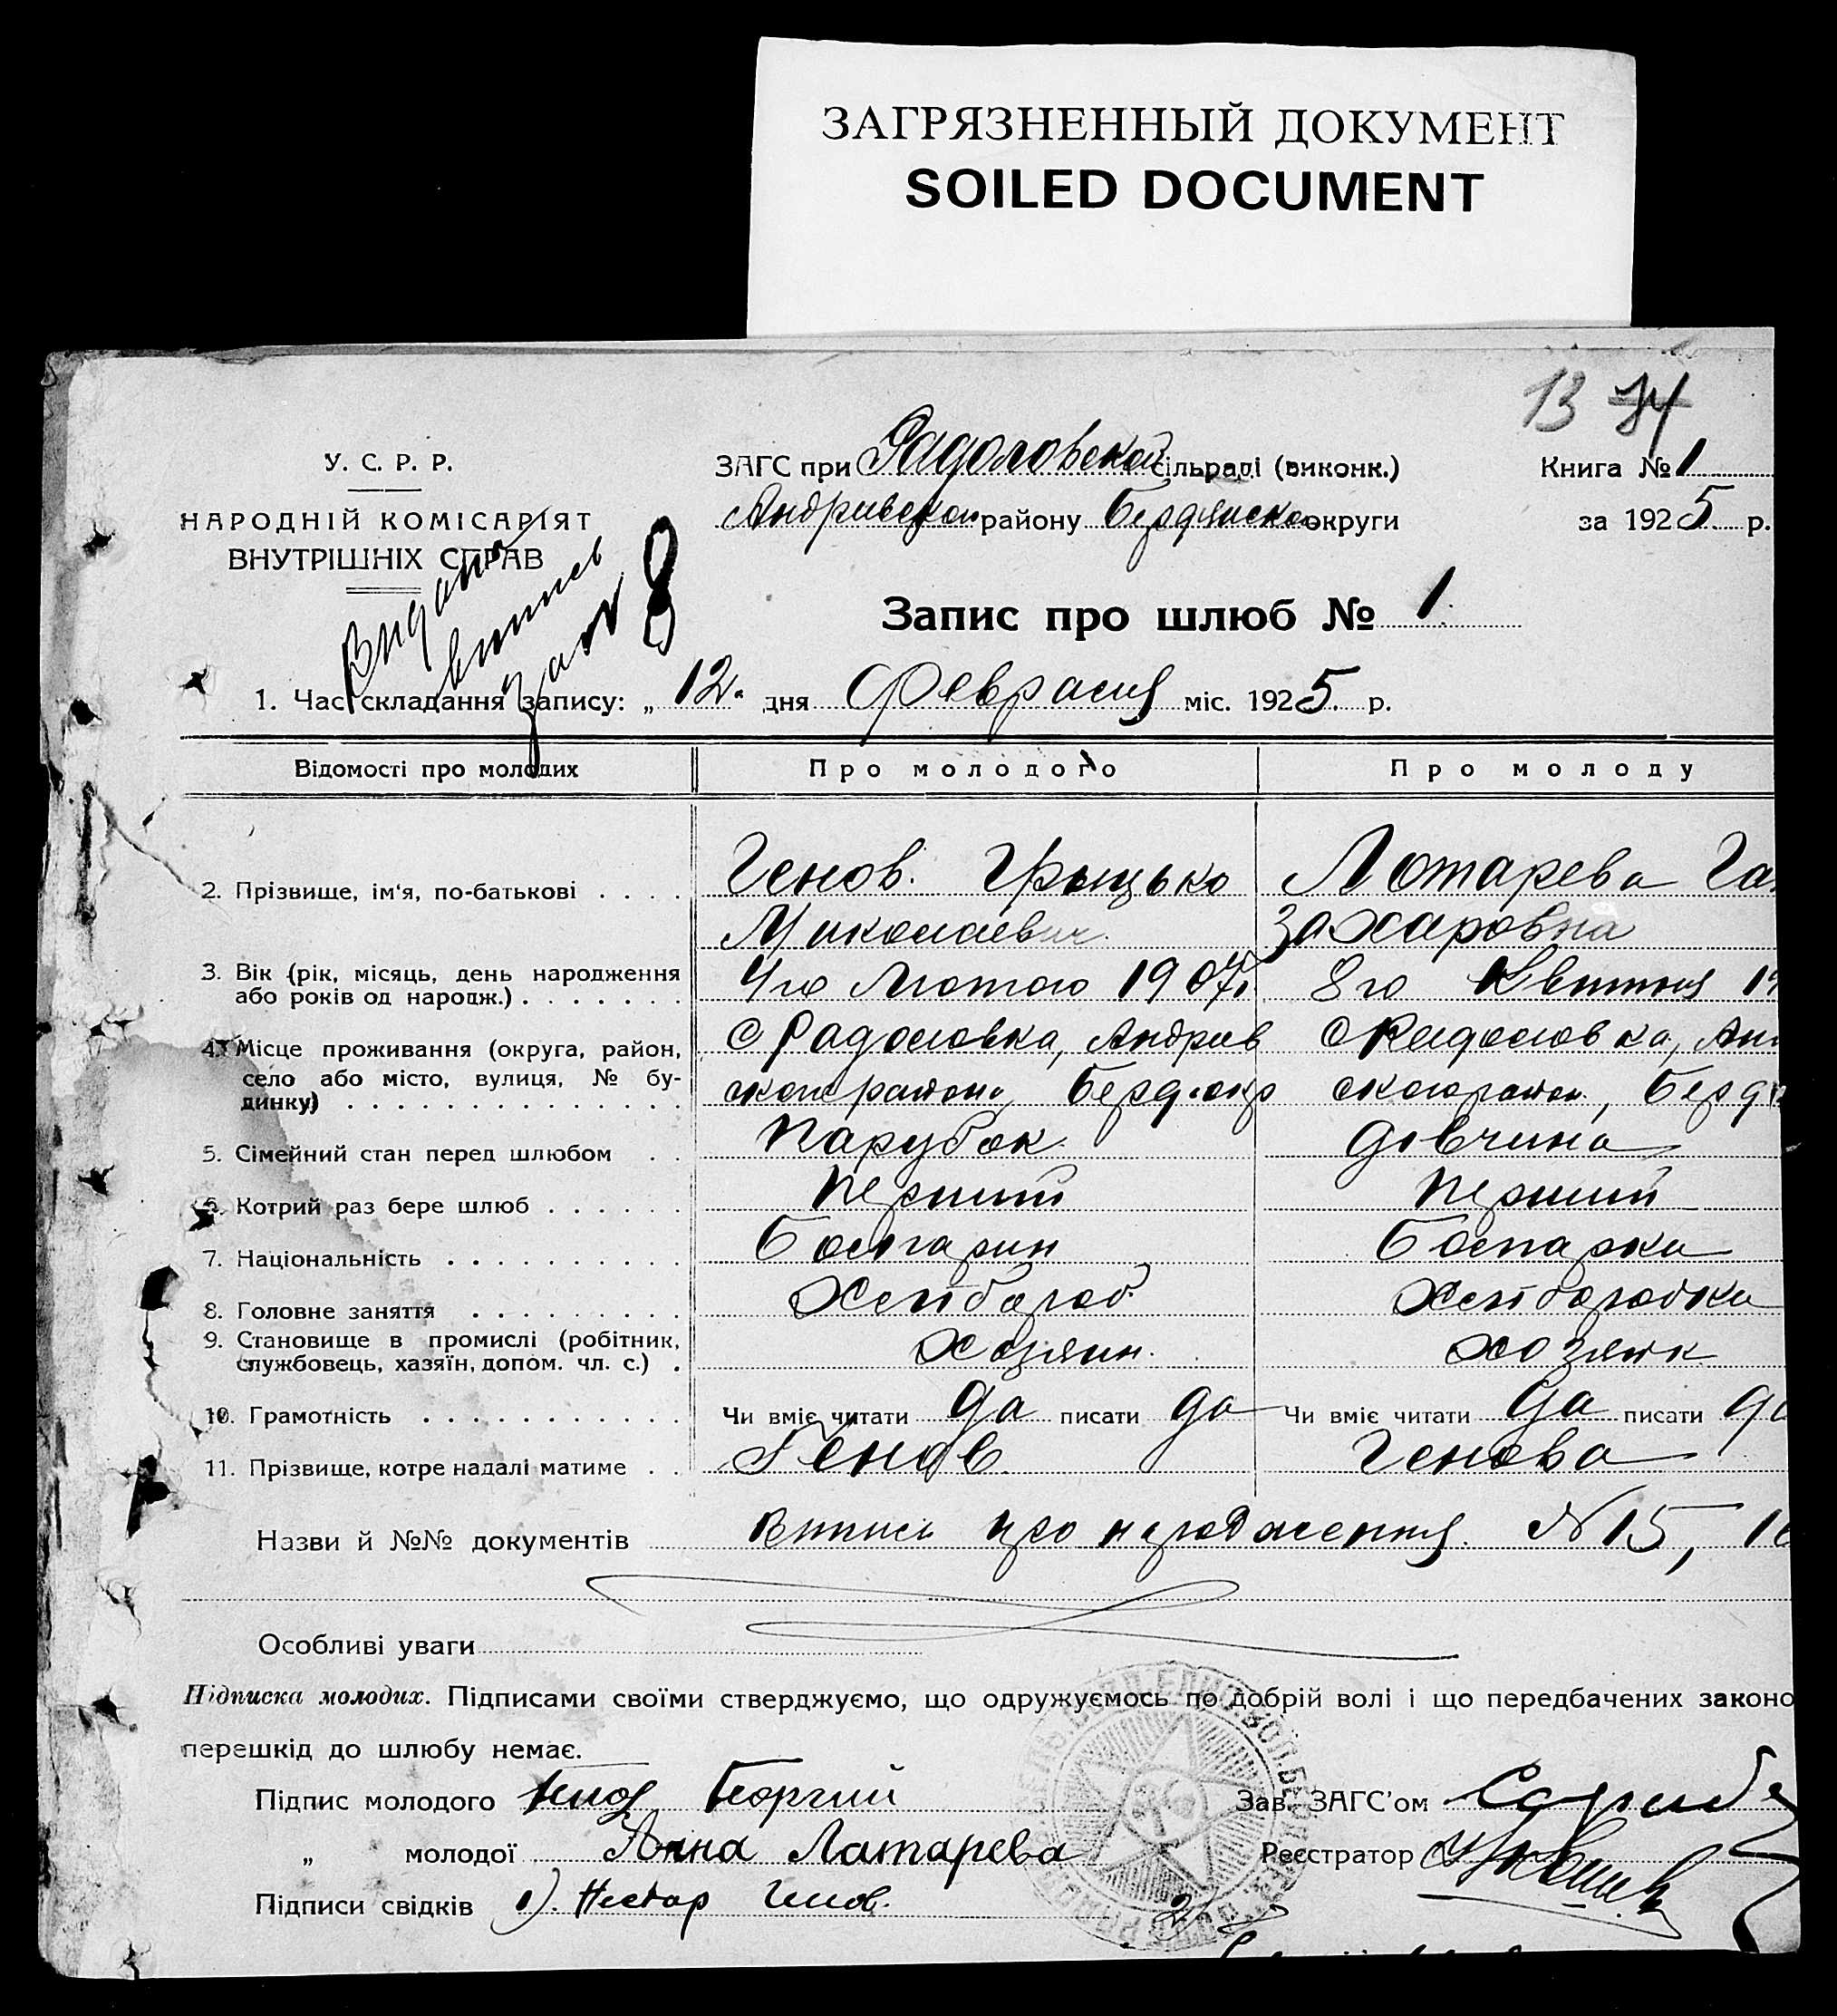 ЗАГРЯЗНЕННЫЙ ДОКУМЕНТ
SOILED DOCUMENT
13 74
У. С. Р. Р.
НАРОДНІЙ КОМІСАРІЯТ
ВНУТРІШНІХ СПРАВ
ЗАГС при Радоловской сільраді (виконк.)
Андривской району Бердянской округи
Книга № 1
за 1925 р.
Видана
випись
8
Запис про шлюб № 1.
1. Час складання запису: „ 12 " дня Февраля міс. 1925. р.
Відомості про молодих Про молодого Про молоду
2. Прізвище, ім'я, по-батькові . . . . Генов. Грыцько Лотарева Га
Миколаевич Захаровна
3. Вік (рік, місяць, день народження
або років од народж.) . . . . . . . 4го Лютого 1907 8го Квитня 19
4. Місце проживання (округа, район, с Радоловка, Андрив с Радоловка, Ан
село або місто, вулиця, № бу-
динку) . . . . . . . . . . . . . . ского района, Берд. окр ского район., Берд
5. Сімейний стан перед шлюбом . . Парубок. Дивчина
6. Котрий раз бере шлюб . . . . . . Перший Перший
7. Національність . . . . . . . . . . Болгарин Болгарка
8. Головне заняття . . . . . . . . Хлибороб. Хлиборобка
9. Становище в промислі (робітник,
службовець, хазяїн, допом. чл. с.) . Хозяин. хозяйк
10. Грамотність . . . . . . . . . . . Чи вміє читати да писати да Чи вміє читати да писати да
11. Прізвище, котре надалі матиме . . Генов Генова
Назви й №№ документів Випись про народження. N 15, 16
Особливі уваги
Підписка молодих. Підписами своїми стверджуємо, що одружуємось по добрій волі і що передбачених законо
перешкід до шлюбу немає.
Підпис молодого Генов Георгий
Зав. ЗАГС'ом
„ молодої Анна Латарева
Реєстратор
Підписи свідків 1). Нестор Генов. 2)